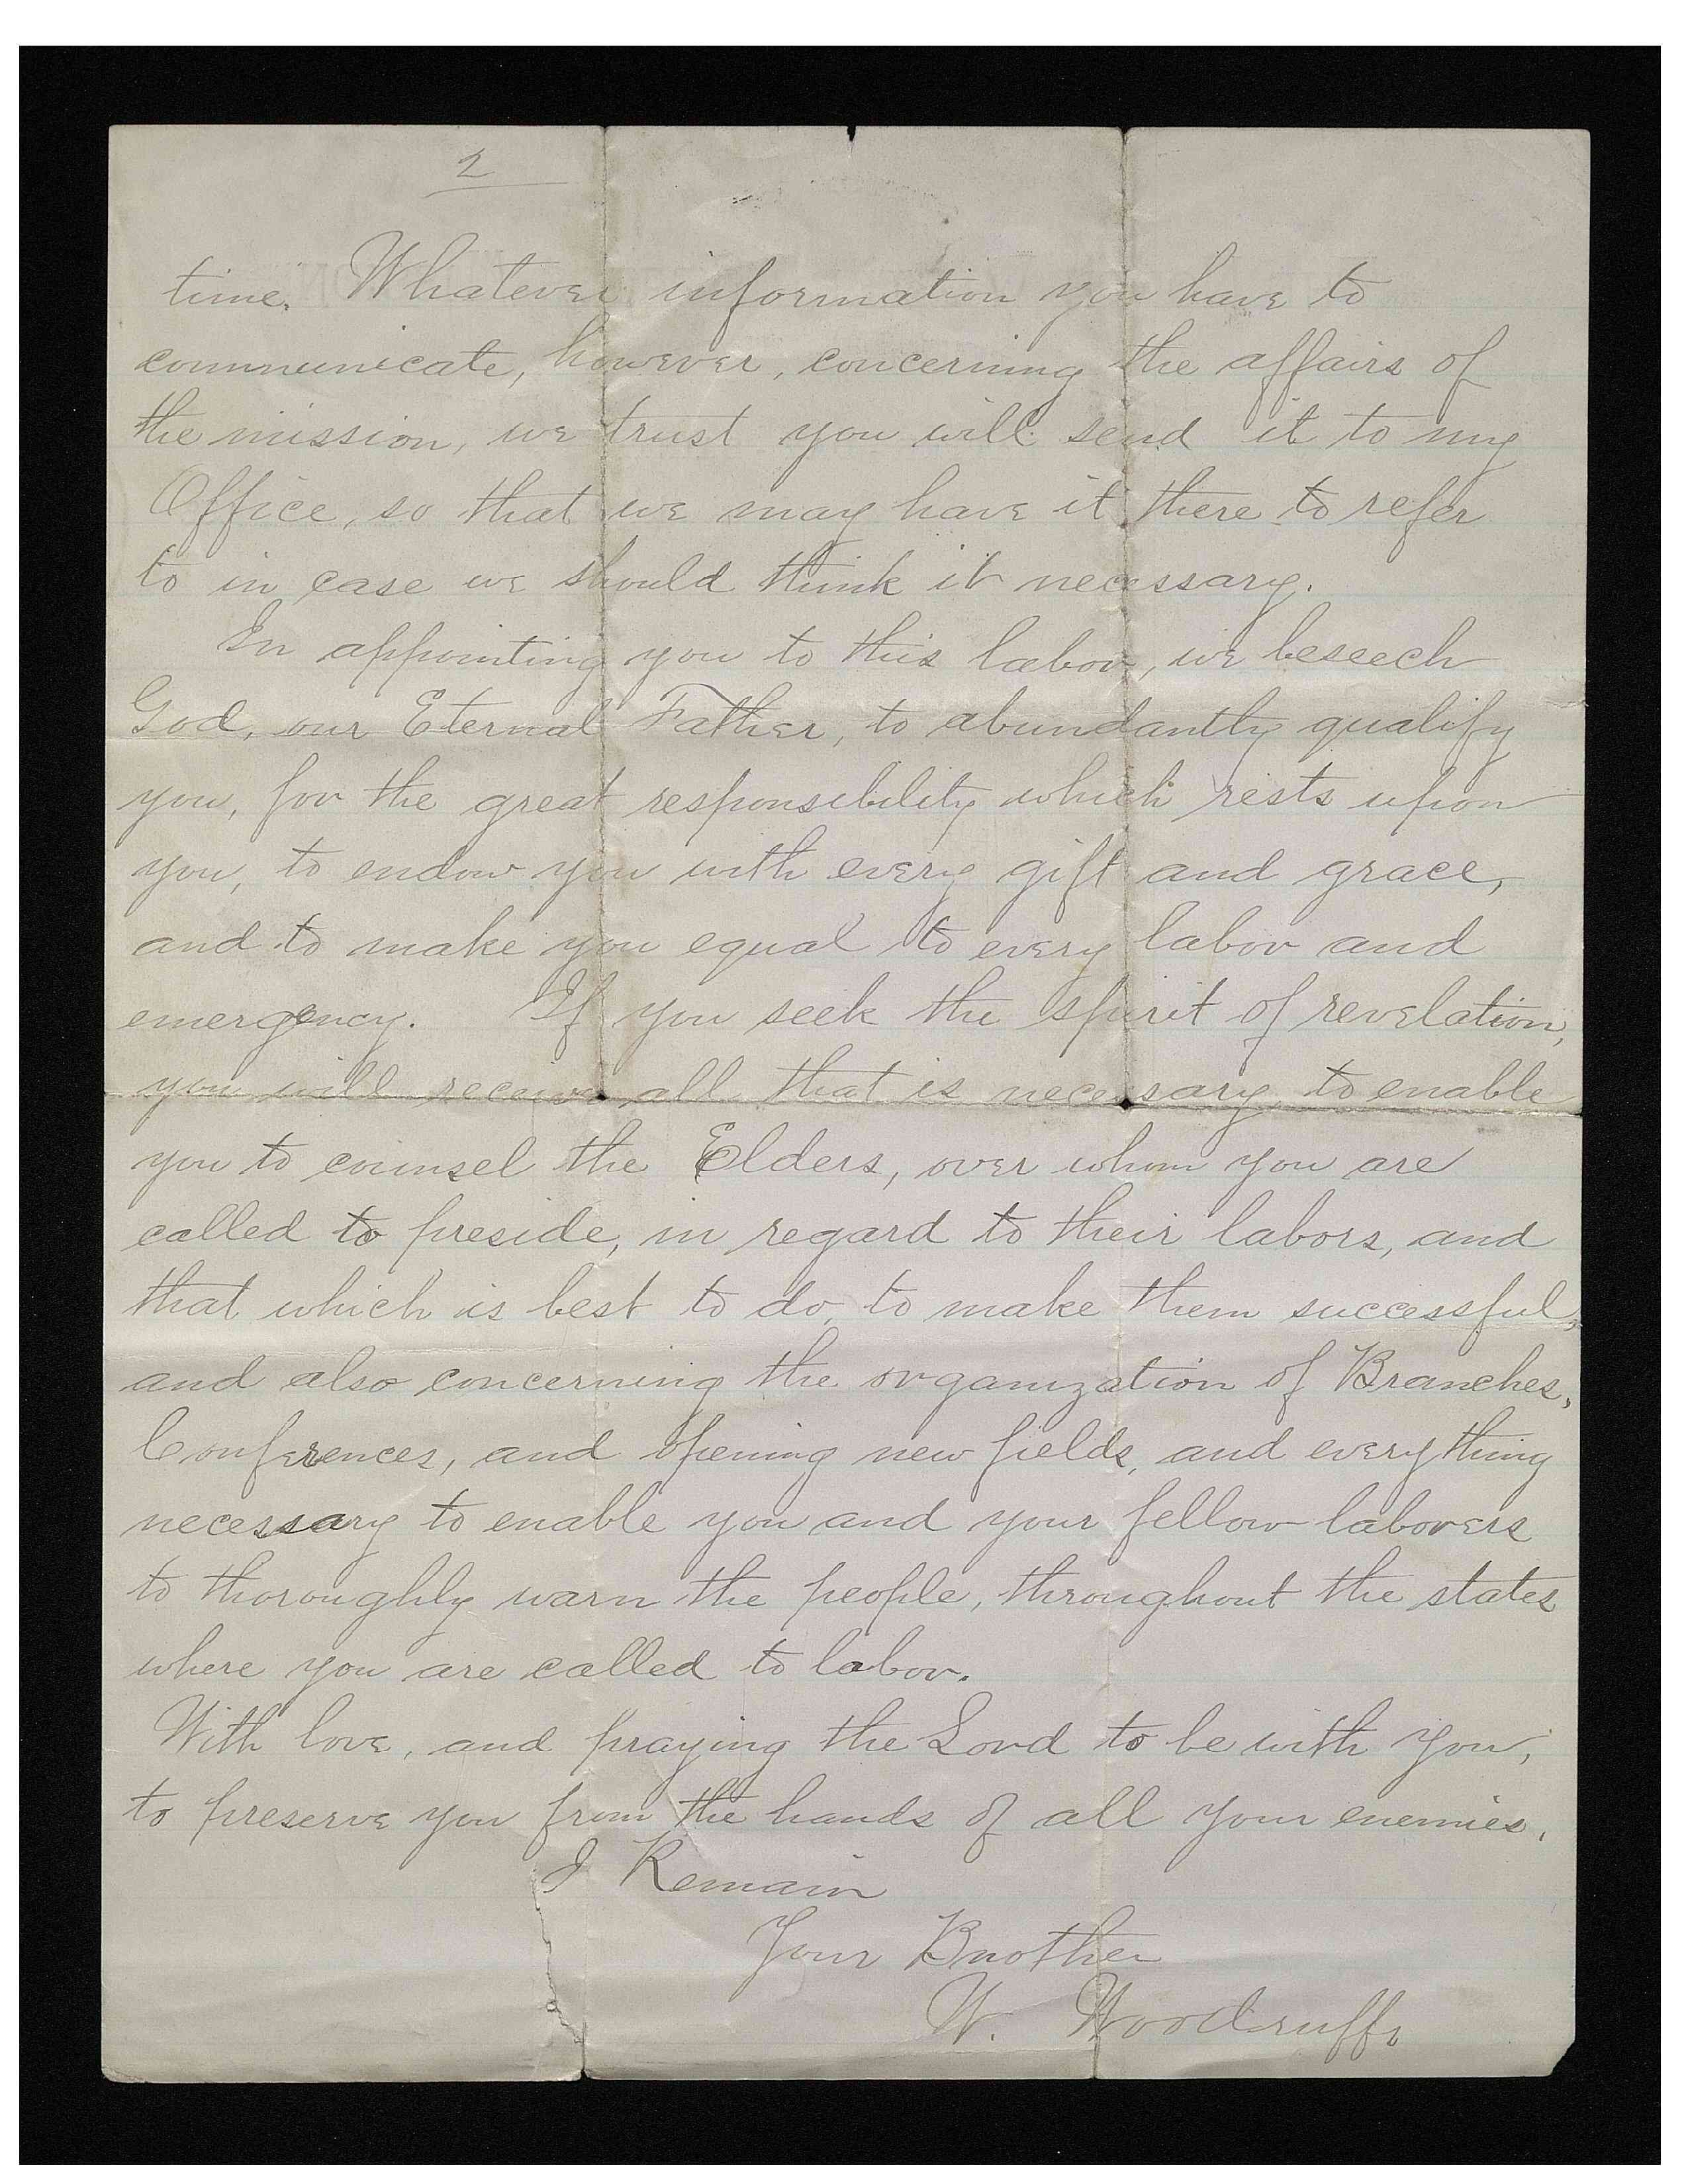 2
time. Whatever information you have to
communicate, however, concerning the affairs of
the mission, we trust you will send it to my
Office, so that we may have it there to refer
to in case we should think it necessary.
In appointing you to this labor, we beseech
God, our Eternal Father, to abundantly qualify
you, for the great responsibility which rests upon
you, to endow you with every gift and grace,
and to make you equal to every labor and
emergency. If you seek the spirit of revelation,
you will receive all that is necessary to enable
you to counsel the Elders, over whom you are
called to preside, in regard to their labors, and
that which is best to do, to make them successful,
and also concerning the organization of Branches,
Conferences, and opening new fields, and everything
necessary to enable you and your fellow laborers
to thoroughly warn the people, throughout the states
where you are called to labor.
With love, and praying the Lord to be with you,
to preserve you from the hands of all your enemies.
I Remain
Your Brother
W. Woodruff